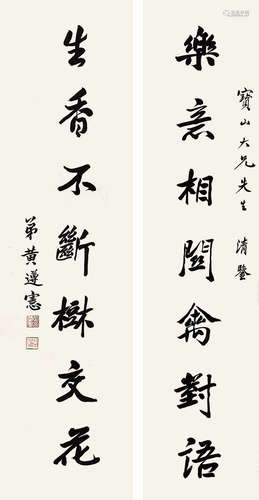 寶山大兄先生 清鑒
樂意相關禽對語
生香不斷樹交花
弟黃遵憲